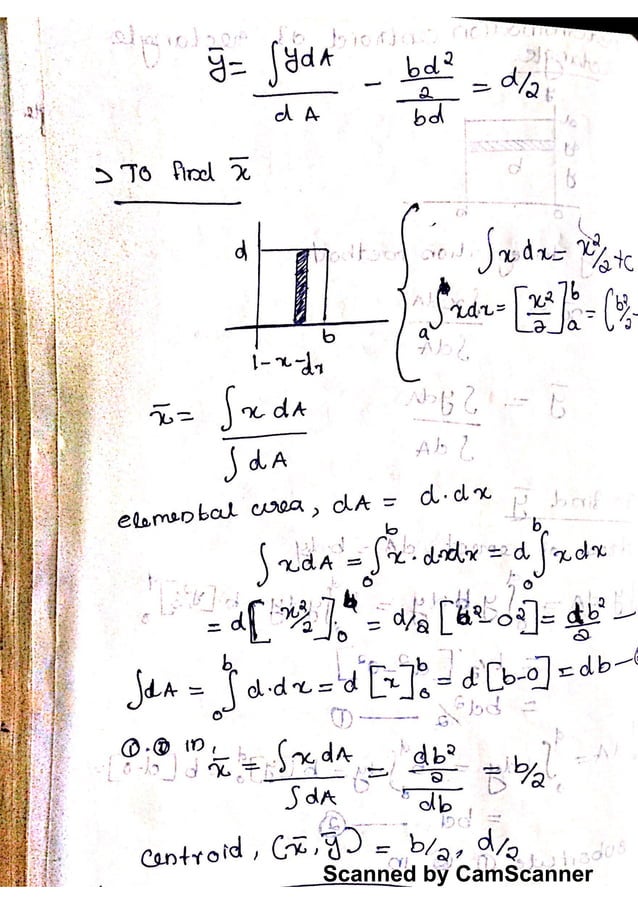 ȳ = ∫ydA / dA - bd²/2 / bd = d/2
> To find x̄
d
b
1-x-dx
∫x dx = x²/2 + c
a∫b xdx = [x²/2]a b = (b²/2 -
x̄ = ∫x dA / ∫dA
elemental area, dA = d.dx
∫xdA = 0∫b x.d×dx = d 0∫b xdx
= d[x²/2]0 b = d/2 [b²-0²] = db²/2 —
∫dA = 0∫b d.dx = d[x]0 b = d[b-0] = db-
①.② in,
x̄ = ∫x dA / ∫dA = db²/2 / db = b/2
Centroid, (x̄, ȳ) = b/2, d/2
Scanned by CamScanner